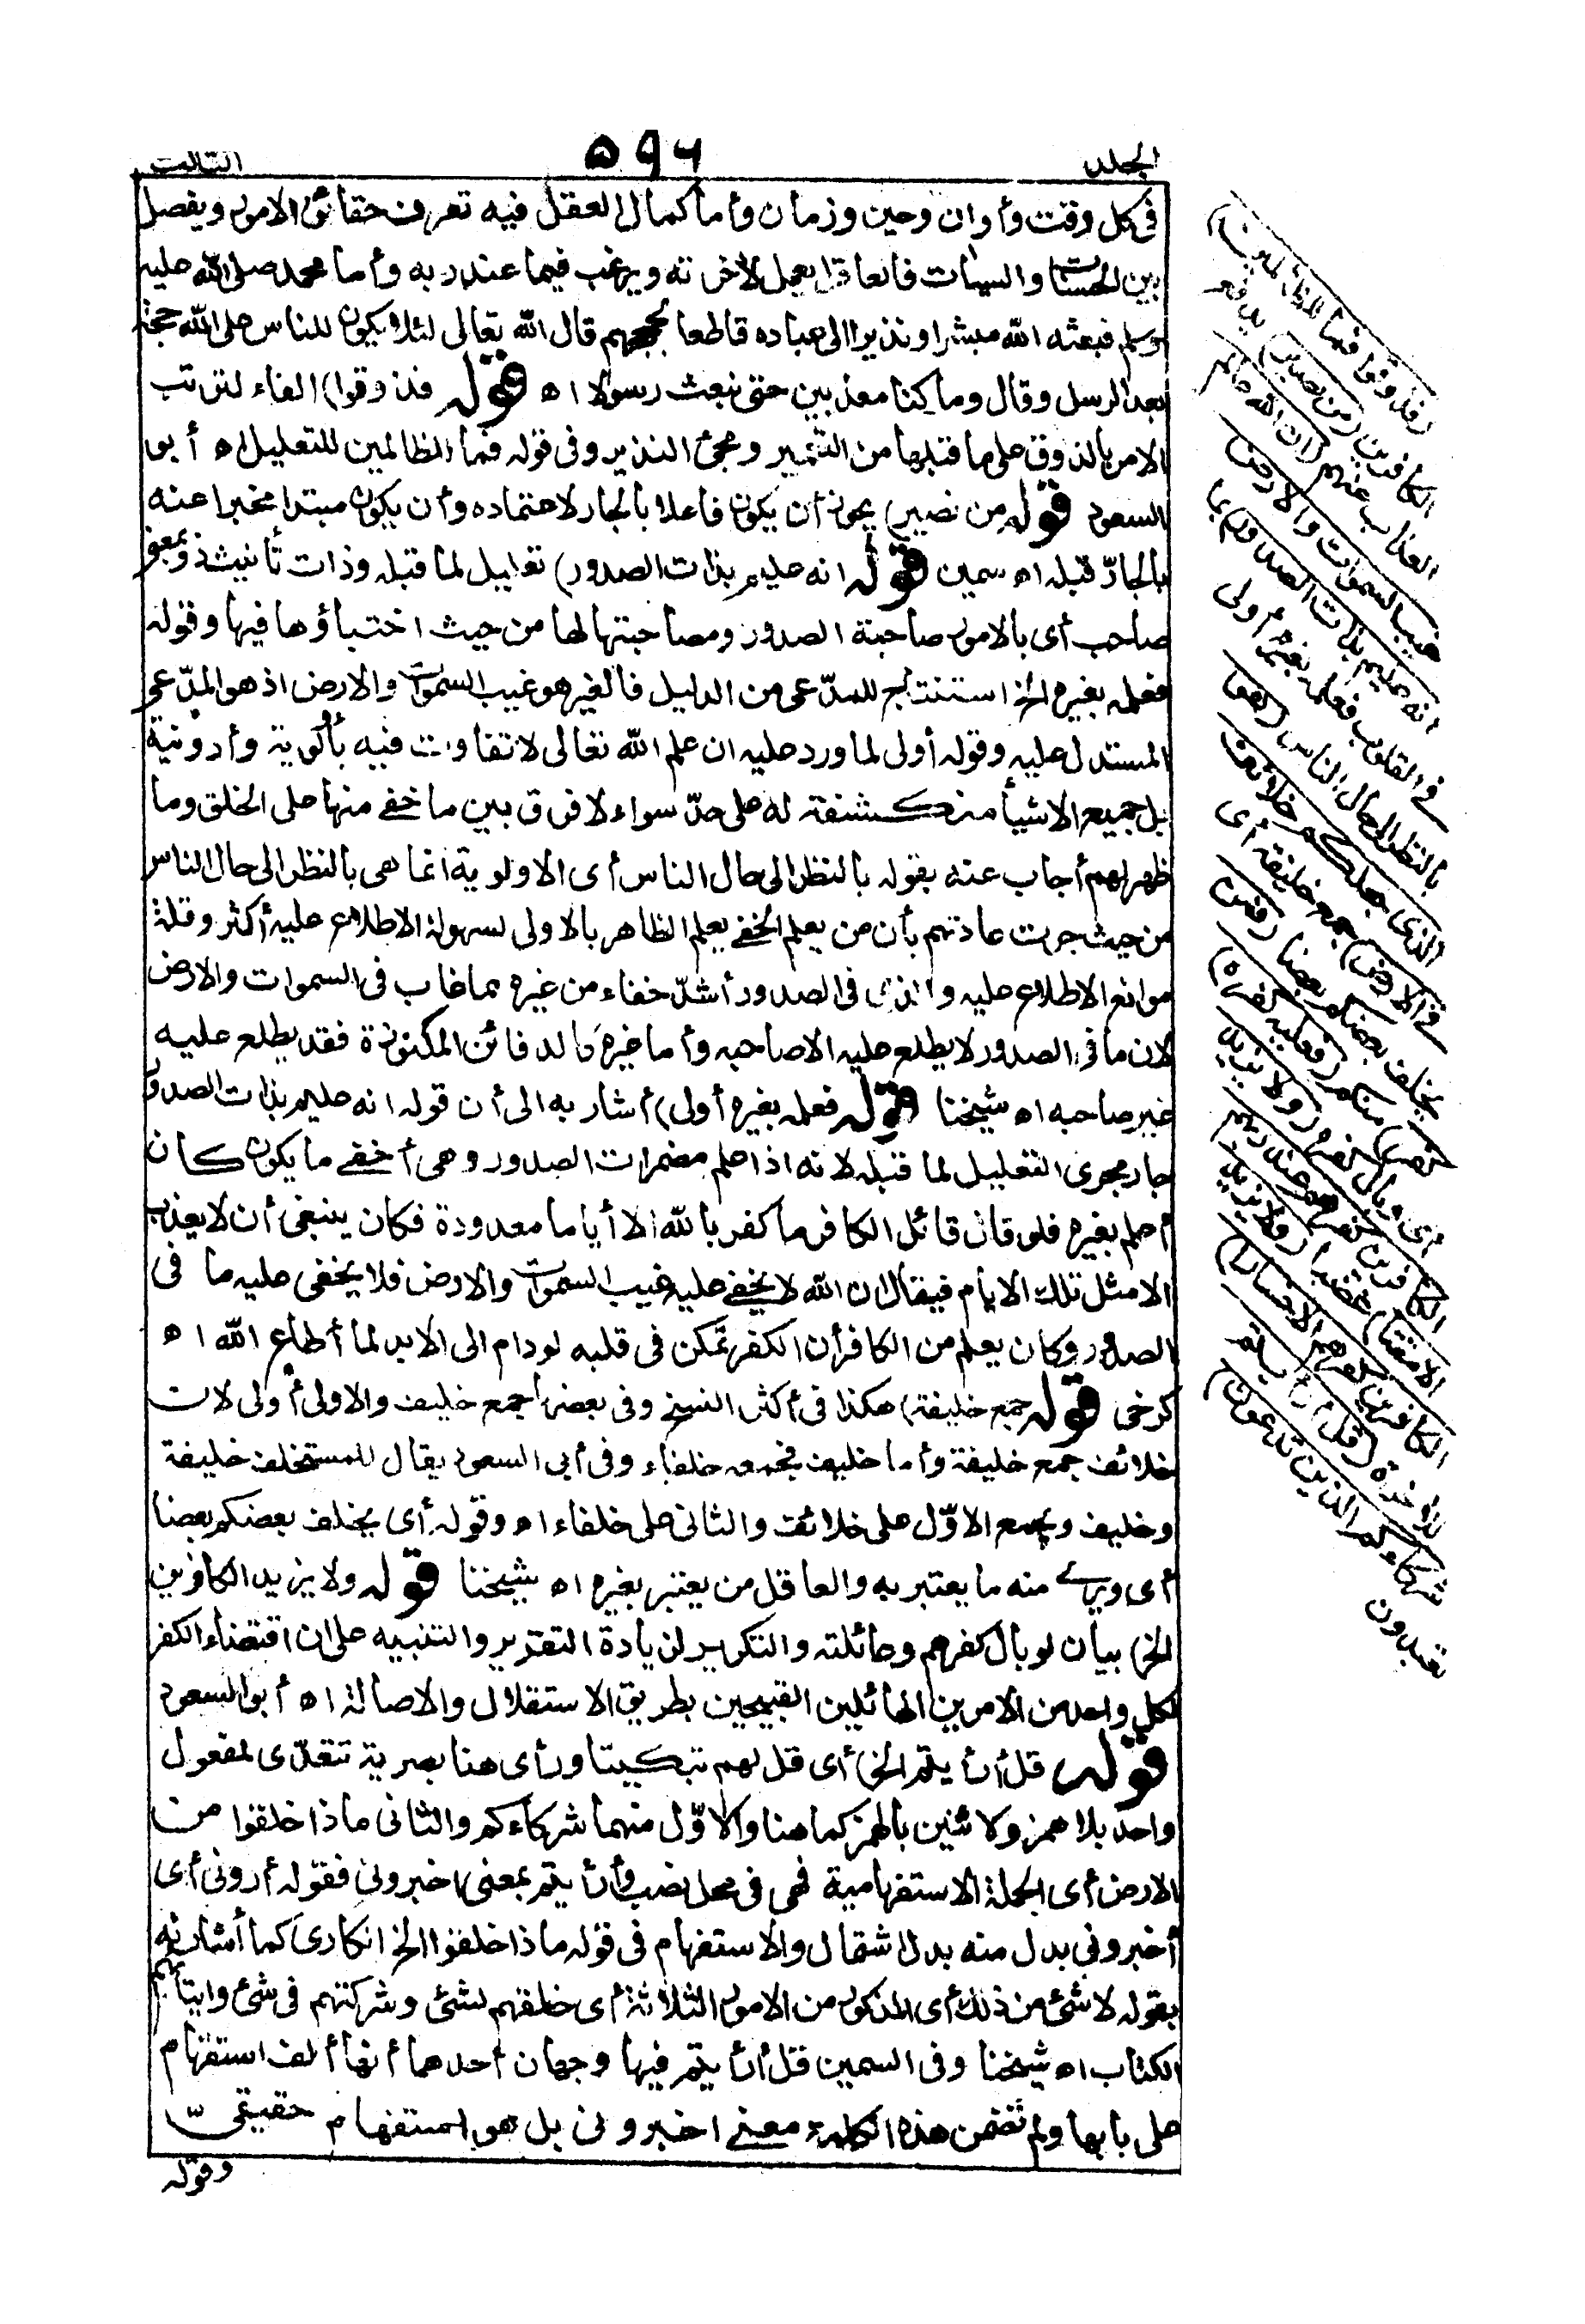 الجلد
٥٩٦
الثالث
فى كل وقت وأوان وحين وزمان وأما كمال العقل فبه تعرف حقائق الامور ويفصل
بين الحسنات والسيئات فالعاقل يعمل لآخرته ويرغب فيما عند ربه وأما محمد صلى الله عليه
وسلم فبعثه الله مبشرا ونذيرا الى عباده قاطعا لحججهم قال الله تعالى لئلا يكون للناس على الله حجة
بعد الرسل وقال وما كنا معذبين حتى نبعث رسولا اه قوله فذوقوا) الفاء لترتب
الامر بالذوق على ما قبلها من التعمير ومجئ النذير وفى قوله فما للظالمين للتعليل اه أبو
السعود قوله من نصير) يجوز أن يكون فاعلا بالجار لاعتماده وأن يكون مبتدا مخبرا عنه
بالجارّ قبله اه سمين قوله انه عليم بذات الصدور) تعليل لما قبله وذات تأنيث ذو بمعنى
صاحب أى بالامور صاحبة الصدور ومصاحبتها لها من حيث اختباؤها فيها وقوله
فعلمه بغيره الخ استنتاج للمدّعى من الدليل فالغير هو غيب السموات والارض اذ هو المدّعى
المستدل عليه وقوله أولى لما ورد عليه ان علم الله تعالى لا تفاوت فيه بأولوية وأدونية
بل جميع الاشيأ منكشفة له على حدّ سواء لا فرق بين ما خفى منها على الخلق وما
ظهر لهم أجاب عنه بقوله بالنظر الى حال الناس أى الاولوية انما هى بالنظر الى حال الناس
من حيث جرت عادتهم بأن من يعلم الخفى يعلم الظاهر بالاولى لسهولة الاطلاع عليه أكثر وقلة
موانع الاطلاع عليه والذى فى الصدور أشدّ خفاء من غيره مما غاب فى السموات والارض
لان ما فى الصدور لا يطلع عليه الا صاحبه وأما غيره كالدفائن المكنوزة فقد يطلع عليه
غير صاحبه اه شيخنا قوله فعلمه بغيره أولى) أشار به الى أن قوله انه عليم بذات الصدور
جار مجرى التعليل لما قبله لانه اذا علم مضمرات الصدور وهى أخفى ما يكون كان
أعلم بغيره فلو قال قائل الكافر ما كفر بالله الا أياما معدودة فكان ينبغى أن لا يعذب
الا مثل تلك الايام فيقال ان الله لا يخفى عليه غيب السموات والارض فلا يخفى عليه ما فى
الصدور وكان يعلم من الكافر أن الكفر تمكن فى قلبه لو دام الى الابد لما أطاع الله اه
كرخى قوله جمع خليفة) هكذا فى أكثر النسخ وفى بعضها جمع خليف والاولى أولى لان
خلائف جمع خليفة وأما خليف فجمعه خلفاء وفى أبى السعود يقال للمستخلف خليفة
وخليف ويجمع الاوّل على خلائف والثانى على خلفاء اه وقوله أى يخلف بعضكم بعضا
أى ويرى منه ما يعتبر به والعاقل من يعتبر بغيره اه شيخنا قوله ولا يزيد الكافرين
الخ) بيان لوبال كفرهم وغائلته والتكرير لزيادة التقرير والتنبيه على ان اقتضاء الكفر
لكل واحد من الامرين الهائلين القبيحين بطريق الاستقلال والاصالة اه أبو السعود
قوله قل أرأيتم الخ) أى قل لهم تبكيتا ورأى هنا بصرية تتعدّى لمفعول
واحد بلا همز ولاثنين بالهمز كما هنا والاوّل منهما شركاءكم والثانى ماذا خلقوا من
الارض أى الجملة الاستفهامية فهى فى محل نصب وأرأيتم بمعنى اخبرونى فقوله أرونى أى
أخبرونى بدل منه بدل اشتمال والاستفهام فى قوله ماذا خلقوا الخ انكارى كما أشار له
بقوله لا شئ من ذلك أى المذكور من الامور الثلاثة أى خلقهم لشئ وشركتهم فى شئ وايتائهم
الكتاب اه شيخنا وفى السمين قل أرأيتم فيها وجهان أحدهما أنها ألف استفهام
على بابها ولم تتضمن هذه الكلمة معنى اخبرونى بل هو استفهام حقيقىّ
وقوله
(فذوقوا فما للظالمين)
الكافرين (من نصير) يدفع
العذاب عنهم (ان الله عالم
غيب السموات والارض
انه عليم بذات الصدور) بما
فى القلوب فعلمه بغيره أولى
بالنظر الى حال الناس (هو
الذى جعلكم خلائف
فى الارض) جمع خليفة أى
يخلف بعضكم بعضا (فمن
كفر) منكم (فعليه كفره)
أى وبال كفره (ولا يزيد
الكافرين كفرهم عند ربهم
الا مقتا) غضبا (ولا يزيد
الكافرين كفرهم الا خسارا)
للآخرة (قل أرأيتم
شركاءكم الذين تدعون)
تعبدون